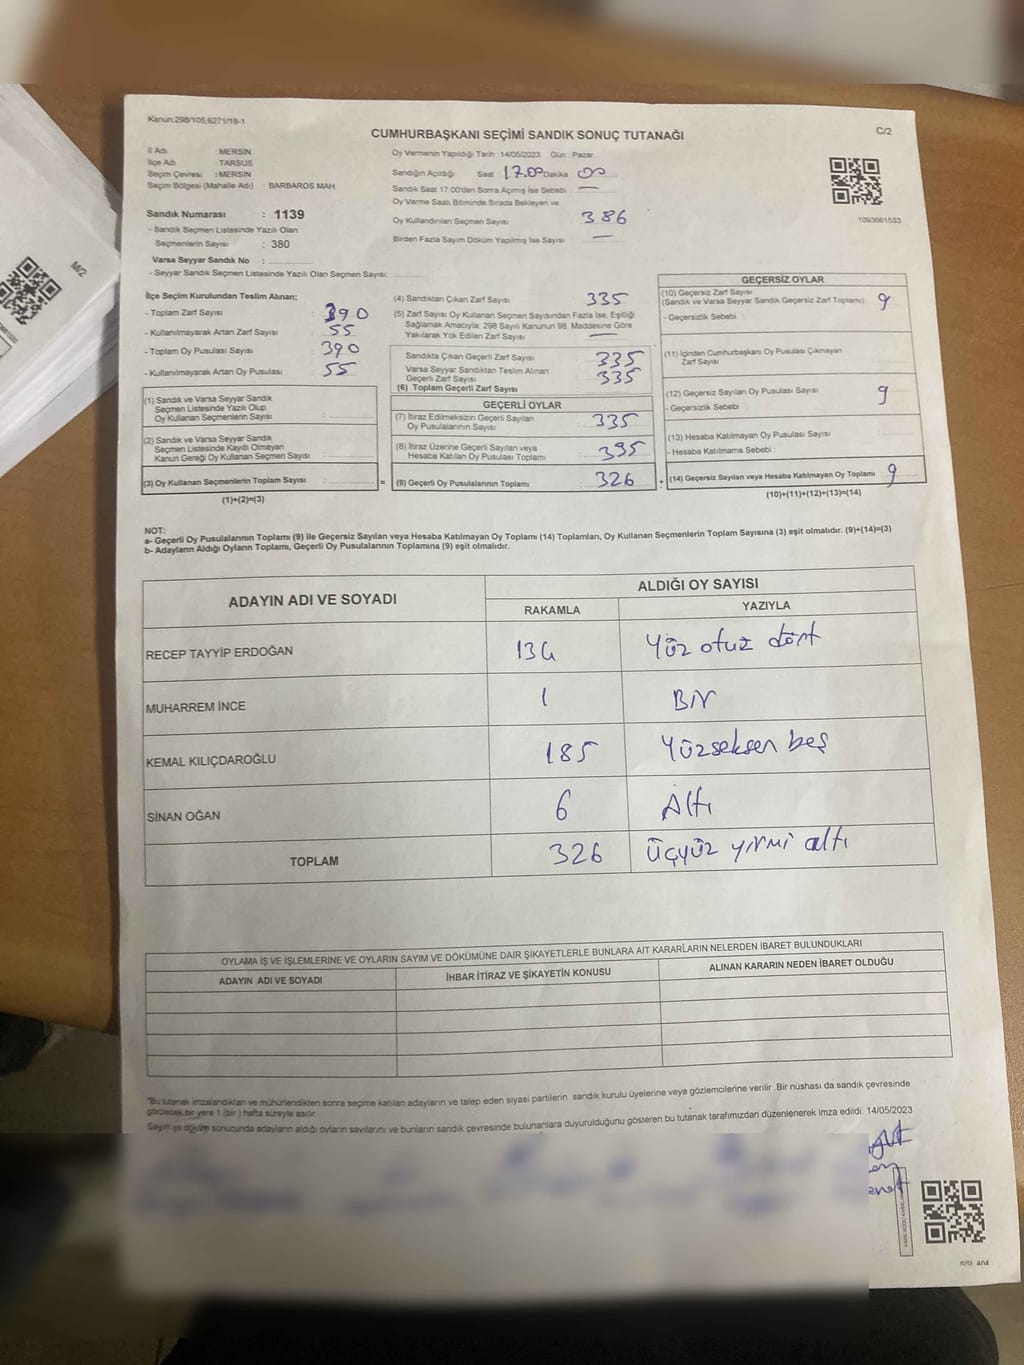 Kanun:298/105,6271/18-1
CUMHURBAŞKANI SEÇİMİ SANDIK SONUÇ TUTANAĞI
C/2
İl Adı : MERSİN
İlçe Adı : TARSUS
Seçim Çevresi : MERSİN
Seçim Bölgesi (Mahalle Adı) BARBAROS MAH
Sandık Numarası : 1139
- Sandık Seçmen Listesinde Yazılı Olan
Seçmenlerin Sayısı : 380
Varsa Seyyar Sandık No :
- Seyyar Sandık Seçmen Listesinde Yazılı Olan Seçmen Sayısı:
Oy Vermenin Yapıldığı Tarih 14/05/2023 Gün : Pazar
Sandığın Açıldığı Saat 17.00 Dakika 00
Sandık Saat 17:00'den Sonra Açımış İse Sebebi —
Oy Verme Saati Bitiminde Sırada Bekleyen ve
Oy Kullandırılan Seçmen Sayısı 386
Birden Fazla Sayım Döküm Yapılmış İse Sayısı —
1093061533
M/2
İlçe Seçim Kurulundan Teslim Alınan;
- Toplam Zarf Sayısı : 390
- Kullanılmayarak Artan Zarf Sayısı : 55
- Toplam Oy Pusulası Sayısı : 390
- Kullanılmayarak Artan Oy Pusulası : 55
(1) Sandık ve Varsa Seyyar Sandık
Seçmen Listesinde Yazılı Olup
Oy Kullanan Seçmenlerin Sayısı :
(2) Sandık ve Varsa Seyyar Sandık
Seçmen Listesinde Kayıtlı Olmayan
Kanun Gereği Oy Kullanan Seçmen Sayısı :
(3) Oy Kullanan Seçmenlerin Toplam Sayısı :
(1)+(2)=(3)
=
(4) Sandıktan Çıkan Zarf Sayısı 335
(5) Zarf Sayısı Oy Kullanan Seçmen Sayısından Fazla İse, Eşitliği
Sağlamak Amacıyla; 298 Sayılı Kanunun 98. Maddesine Göre
Yakılarak Yok Edilen Zarf Sayısı —
Sandıkta Çıkan Geçerli Zarf Sayısı 335
Varsa Seyyar Sandıktan Teslim Alınan
Geçerli Zarf Sayısı 335
(6) Toplam Geçerli Zarf Sayısı
GEÇERLİ OYLAR
(7) İtiraz Edilmeksizin Geçerli Sayılan
Oy Pusulalarının Sayısı 335
(8) İtiraz Üzerine Geçerli Sayılan veya
Hesaba Katılan Oy Pusulası Toplamı 335
(9) Geçerli Oy Pusulalarının Toplamı 326
+
GEÇERSİZ OYLAR
(10) Geçersiz Zarf Sayısı
(Sandık ve Varsa Seyyar Sandık Geçersiz Zarf Toplamı) 9
- Geçersizlik Sebebi :
(11) İçinden Cumhurbaşkanı Oy Pusulası Çıkmayan
Zarf Sayısı
(12) Geçersiz Sayılan Oy Pusulası Sayısı 9
- Geçersizlik Sebebi :
(13) Hesaba Katılmayan Oy Pusulası Sayısı
- Hesaba Katılmama Sebebi :
(14) Geçersiz Sayılan veya Hesaba Katılmayan Oy Toplamı 9
(10)+(11)+(12)+(13)=(14)
NOT:
a- Geçerli Oy Pusulalarının Toplamı (9) ile Geçersiz Sayılan veya Hesaba Katılmayan Oy Toplamı (14) Toplamları, Oy Kullanan Seçmenlerin Toplam Sayısına (3) eşit olmalıdır. (9)+(14)=(3)
b- Adayların Aldığı Oyların Toplamı, Geçerli Oy Pusulalarının Toplamına (9) eşit olmalıdır.
ADAYIN ADI VE SOYADI
ALDIĞI OY SAYISI
RAKAMLA YAZIYLA
RECEP TAYYİP ERDOĞAN 134 Yüz otuz dört
MUHARREM İNCE 1 Bir
KEMAL KILIÇDAROĞLU 185 Yüzseksen beş
SİNAN OĞAN 6 Altı
TOPLAM 326 Üçyüz yirmi altı
OYLAMA İŞ VE İŞLEMLERİNE VE OYLARIN SAYIM VE DÖKÜMÜNE DAİR ŞİKAYETLERLE BUNLARA AİT KARARLARIN NELERDEN İBARET BULUNDUKLARI
ADAYIN ADI VE SOYADI İHBAR İTİRAZ VE ŞİKAYETİN KONUSU ALINAN KARARIN NEDEN İBARET OLDUĞU
*Bu tutanak imzalandıktan ve mühürlendikten sonra seçime katılan adayların ve talep eden siyasi partilerin sandık kurulu üyelerine veya gözlemcilerine verilir. Bir nüshası da sandık çevresinde
görülecek bir yere 1 (bir) hafta süreyle asılır.
Sayım ve döküm sonucunda adayların aldığı oyların sayılarını ve bunların sandık çevresinde bulunanlara duyurulduğunu gösteren bu tutanak tarafımızdan düzenlenerek imza edildi. 14/05/2023